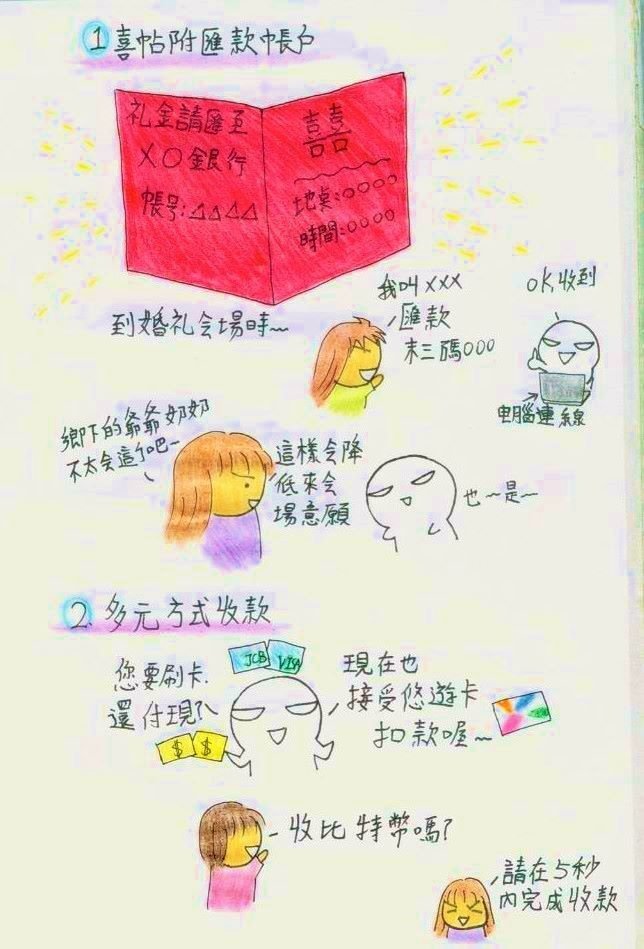 1 喜帖附匯款帳户
礼金請匯至
XO銀行
帳号:△△△△
囍
地桌:○○○○
時間:○○○○
到婚礼会場時~
我叫XXX
匯款
末三碼000
OK收到
电腦連線
鄉下的爺爺奶奶
不太会這个吧~
這樣会降
低來会
場意願
也~是~
2. 多元方式收款
您要刷卡
還付現?
JCB VISA
$ $
現在也
接受悠遊卡
扣款喔~
收比特幣嗎?
請在5秒
內完成收款